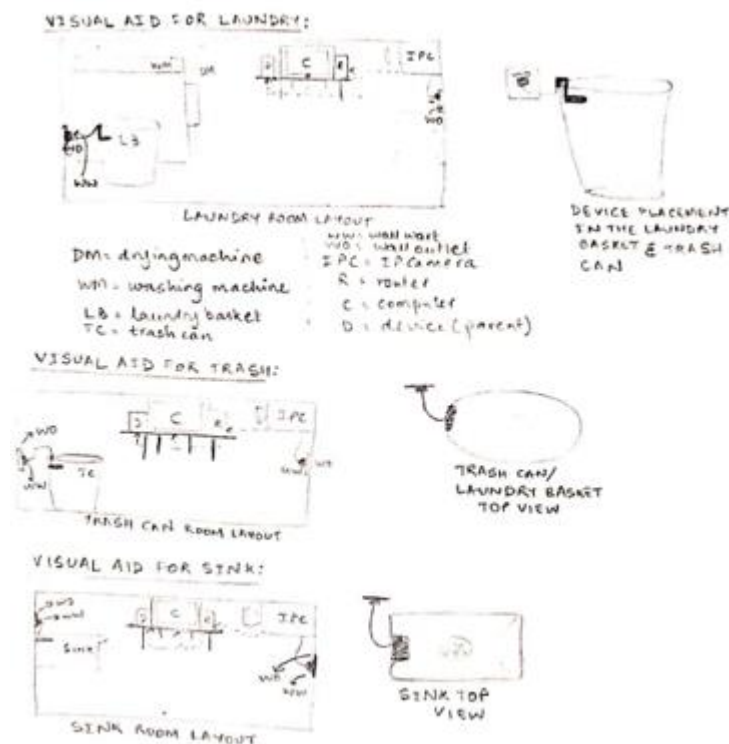 VISUAL AID FOR LAUNDRY:
WM
DM
D
C
R
IPC
WO
LB
WO
WW
LAUNDRY ROOM LAYOUT
DEVICE PLACEMENT
IN THE LAUNDRY
BASKET & TRASH
CAN
DM = drying machine
WM = washing machine
LB = laundry basket
TC = trash can
WW = wall wart
WO = wall outlet
IPC = IP camera
R = router
C = computer
D = device (parent)
VISUAL AID FOR TRASH:
WO
D
C
R
IPC
WW
TC
WW
WO
TRASH CAN ROOM LAYOUT
TRASH CAN/
LAUNDRY BASKET
TOP VIEW
VISUAL AID FOR SINK:
WO
WW
D
C
R
IPC
Sink
WO
WW
SINK ROOM LAYOUT
SINK TOP
VIEW